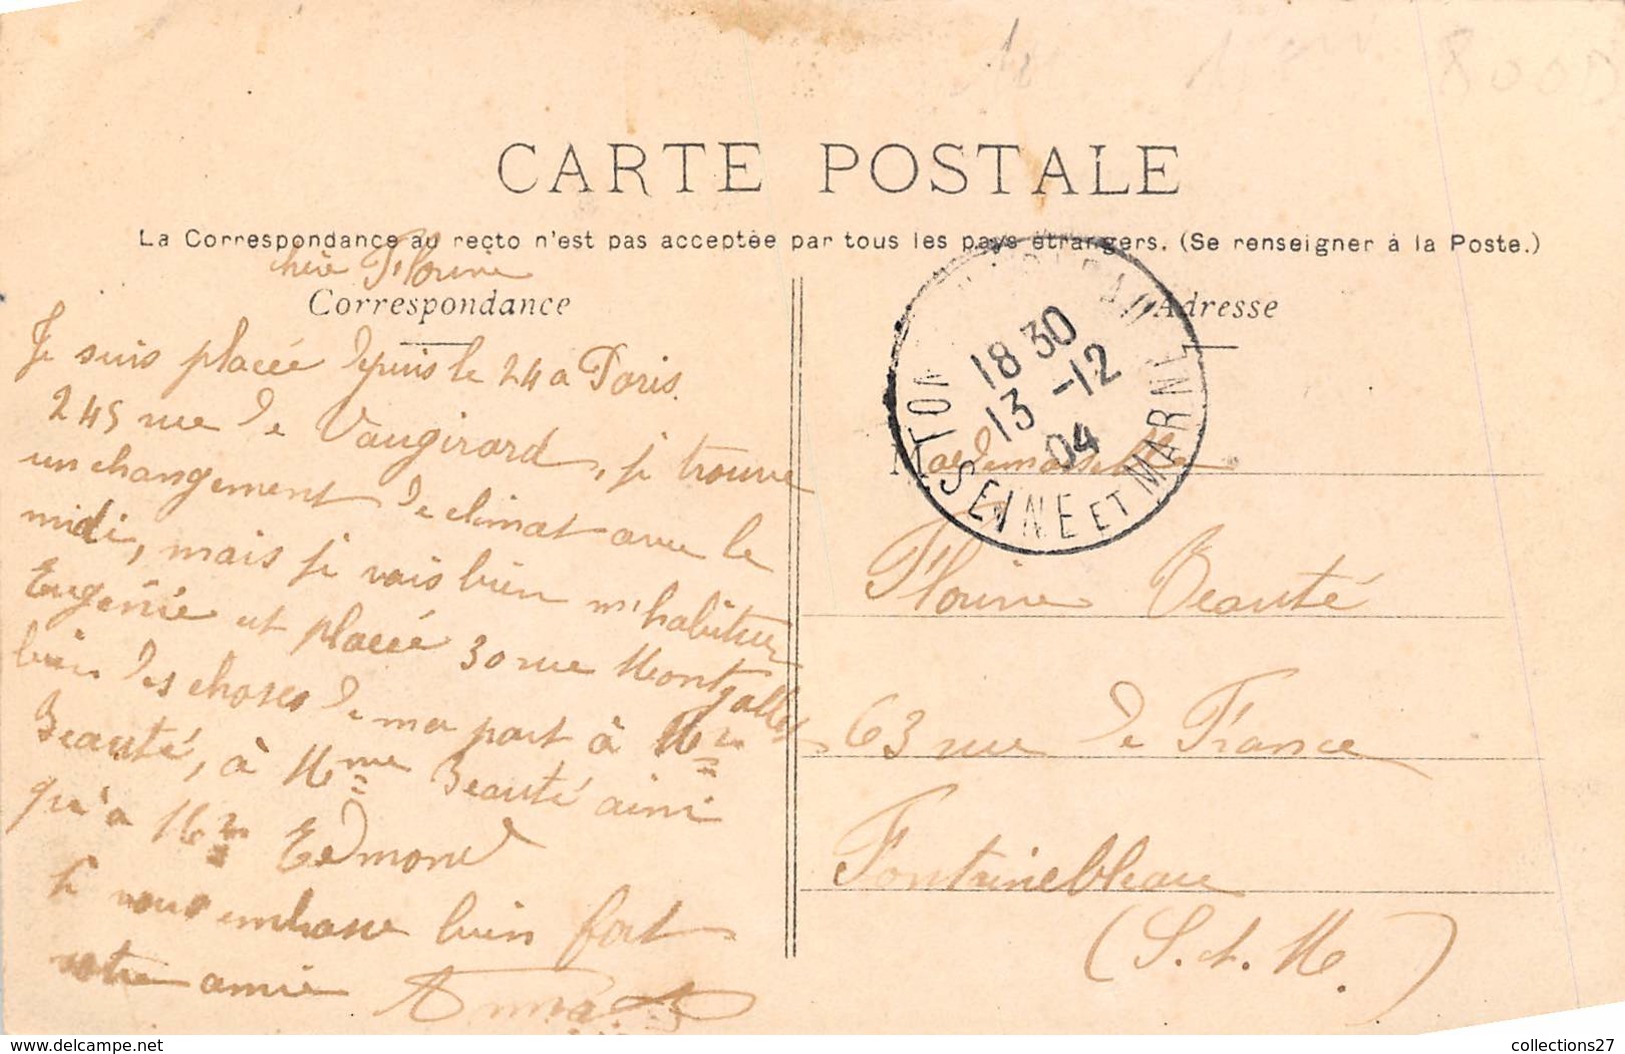 CARTE POSTALE
La Correspondance au recto n'est pas acceptée par tous les pays étrangers. (Se renseigner à la Poste.)
chère Florine
Correspondance
Je suis placée depuis le 24 a Paris.
245 rue de Vaugirard, je trouve
un changement de climat avec le
midi, mais je vais bien m'habituer
Eugénie est placée 30 rue Montgallet
bien des choses de ma part à Mr
Beauté, à Mme Beauté ainsi
qu'a Mr Edmond
Je vous embrasse bien fort
votre amie Anna
Adresse
18 30
13 -12
04
SEINE ET MARNE
Mademoiselle
Florine Beauté
63 rue de France
Fontainebleau
(S. et. M.)
collections27